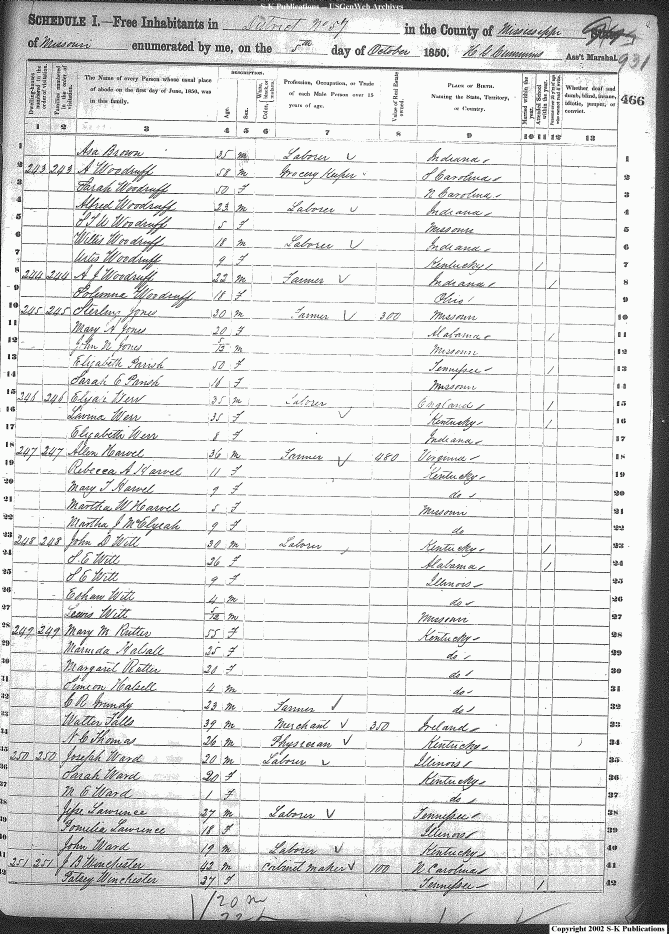 S-K Publications - USGenWeb Archives
SCHEDULE I.—Free Inhabitants in District No 57 in the County of Mississippi State
of Missouri enumerated by me, on the 5th day of October 1850. Ass't Marshal.
931
466
Dwelling-houses numbered in the order of visitation.
Families numbered in the order of visitation.
The Name of every Person whose usual place of abode on the first day of June, 1850, was in this family.
DESCRIPTION.
Age.
Sex.
Profession, Occupation, or Trade of each Male Person over 15 years of age.
Value of Real Estate owned.
PLACE OF BIRTH.
Naming the State, Territory, or Country.
Married within the year.
Attended School within the year.
Whether deaf and dumb, blind, insane, idiotic, pauper, or convict.
1 2 3 4 5 6 7 8 9 10 11 12 13
1 Asa Brown 35 m Laborer Indiana 1
2 243 243 A Woodruff 58 m Grocery Keeper S Carolina 2
3 Sarah Woodruff 50 F N Carolina 3
4 Alfred Woodruff 23 m Laborer Indiana 4
5 Woodruff 5 F Missouri 5
6 Willis Woodruff 18 m Laborer Indiana 6
7 Woodruff 9 F Kentucky 1 7
8 244 244 A J Woodruff 22 m Farmer Indiana 1 8
9 Woodruff 18 F Ohio 9
10 245 245 Sterling Jones 30 m Farmer 300 Missouri 10
11 Mary A Jones 20 F Alabama 1 11
12 John N Jones 5/12 m Missouri 12
13 Elizabeth Parish 50 F Tennessee 1 13
14 Sarah C Parish 16 F Missouri 14
15 246 246 Werr 35 m Laborer England 1 15
16 Lavina Werr 35 F Kentucky 1 16
17 Elizabeth Werr 8 F Indiana 17
18 247 247 Allen Harvel 36 m Farmer 480 Virginia 18
19 Rebecca A Harvel 11 F Kentucky 19
20 Mary T Harvel 9 F do 20
21 Martha W Harvel 5 F Missouri 21
22 Martha J McElyeah 9 F do 22
23 248 248 John D Witt 30 m Laborer Kentucky 1 23
24 S. E Witt 26 F Alabama 1 24
25 S E Witt 9 F Illinois 25
26 Witt 4 m do 26
27 Lewis Witt m Missouri 27
28 249 249 Mary M Rutter 55 F Kentucky 28
29 Marinda Halsall 25 F do 29
30 Margaret Rutter 20 F do 30
31 Simeon Halsell 4 m do 31
32 C R Grundy 23 m Farmer do 32
33 Walter Falls 39 m Merchant 350 Ireland 33
34 N C Thomas 26 m Physician Kentucky 34
35 250 250 Josejah Ward 20 m Laborer Illinois 35
36 Sarah Ward 20 F Kentucky 36
37 M E Ward 1 F do 37
38 Jesse Lawrence 27 m Laborer Tennessee 38
39 Pomelia Lawrence 18 F Illinois 39
40 John Ward 19 m Laborer Kentucky 40
41 251 251 J A Winchester 42 m Cabinet maker 100 N Carolina 41
42 Patsey Winchester 37 F Tennessee 1 42
20 m
22 f
Copyright 2002 S-K Publications